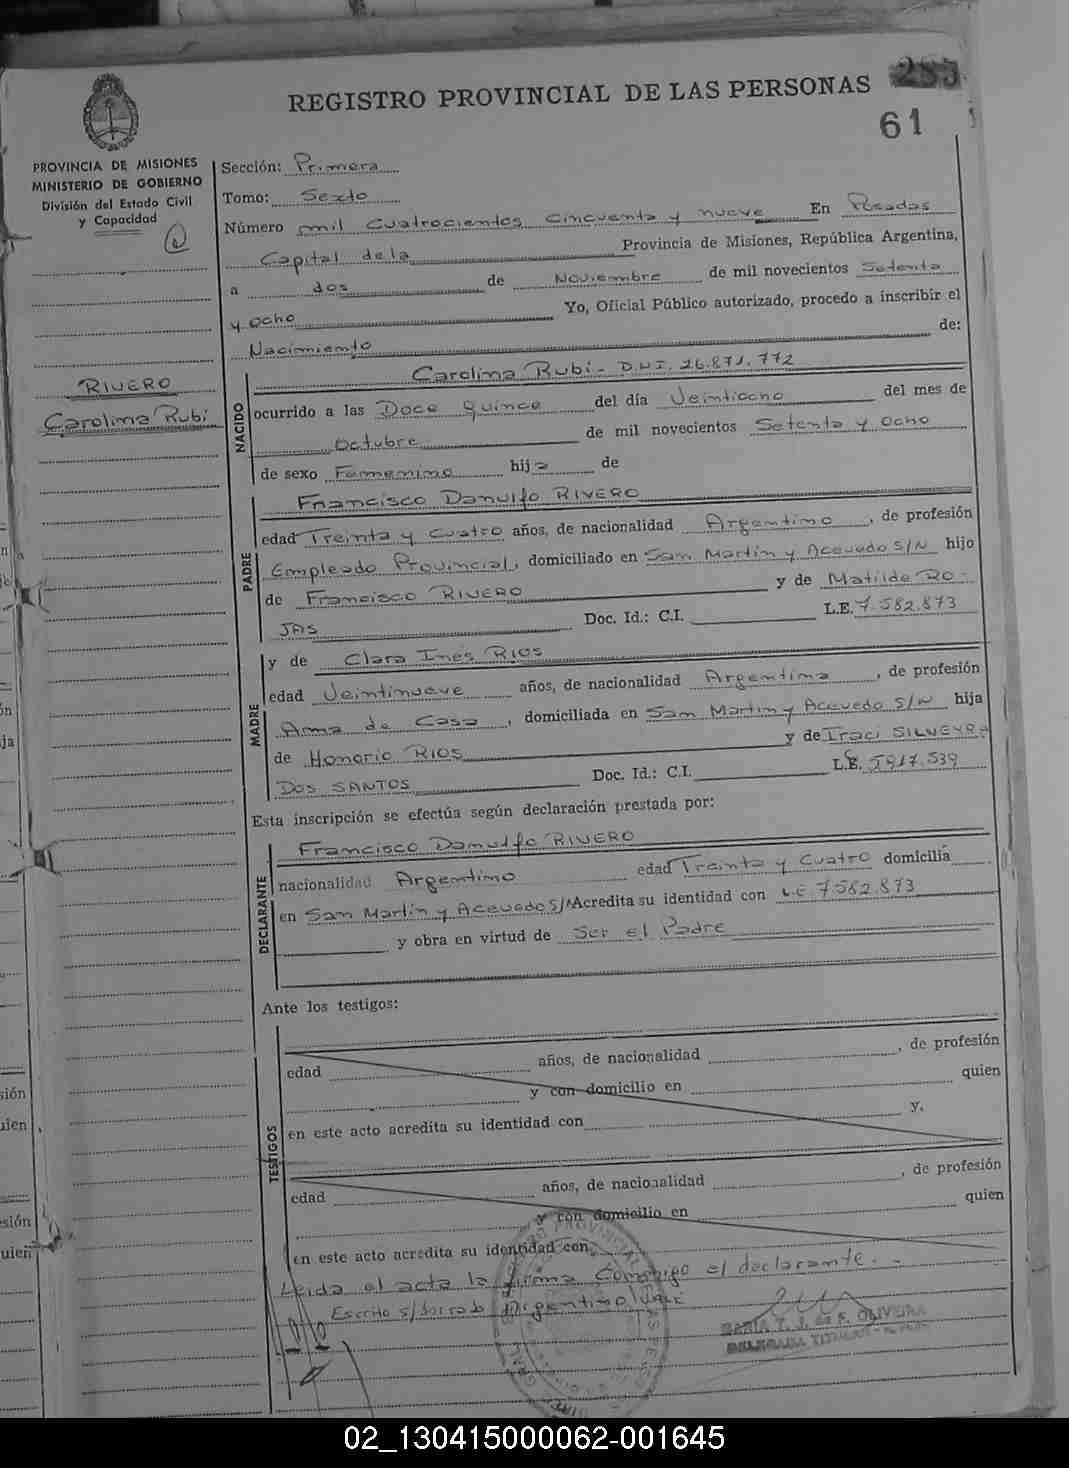 285
REGISTRO PROVINCIAL DE LAS PERSONAS
61
PROVINCIA DE MISIONES
MINISTERIO DE GOBIERNO
División del Estado Civil
y Capacidad
RIVERO
Carolina Rubi
Sección: Primera
Tomo: Sexto
Número mil cuatrocientos cincuenta y nueve En Posadas
Capital de la Provincia de Misiones, República Argentina,
a dos de Noviembre de mil novecientos Setenta
y ocho Yo, Oficial Público autorizado, procedo a inscribir el
Nacimiento de:
NACIDO
Carolina Rubi - D.N.I. 26.871.772
ocurrido a las Doce quince del día Veintiocho del mes de
Octubre de mil novecientos Setenta y ocho
de sexo Femenino hija de
PADRE
Francisco Danulfo RIVERO
edad Treinta y cuatro años, de nacionalidad Argentino, de profesión
Empleado Provincial, domiciliado en San Martín y Acevedo S/N hijo
de Francisco RIVERO y de Matilde RO-
JAS Doc. Id.: C.I. L.E. 7.582.873
MADRE
y de Clara Inés RIOS
edad Veintinueve años, de nacionalidad Argentina, de profesión
Ama de Casa, domiciliada en San Martín y Acevedo S/N hija
de Honorio RIOS y de Iraci SILVEYRA
DOS SANTOS Doc. Id.: C.I. 5917.539
Esta inscripción se efectúa según declaración prestada por:
DECLARANTE
Francisco Danulfo RIVERO
nacionalidad Argentino edad Treinta y cuatro domicilia
en San Martín y Acevedo S/N Acredita su identidad con LE 7582.873
y obra en virtud de Ser el Padre
Ante los testigos:
TESTIGOS
edad años, de nacionalidad , de profesión
y con domicilio en quien
en este acto acredita su identidad con y,
edad años, de nacionalidad , de profesión
y con domicilio en quien
en este acto acredita su identidad con
Leida el acta la firma Conmigo el declarante.-
Escrito s/borrado Argentino Vale
MARIA T. J. de F. OLIVEIRA
DELEGADA TITULAR
02_130415000062-001645